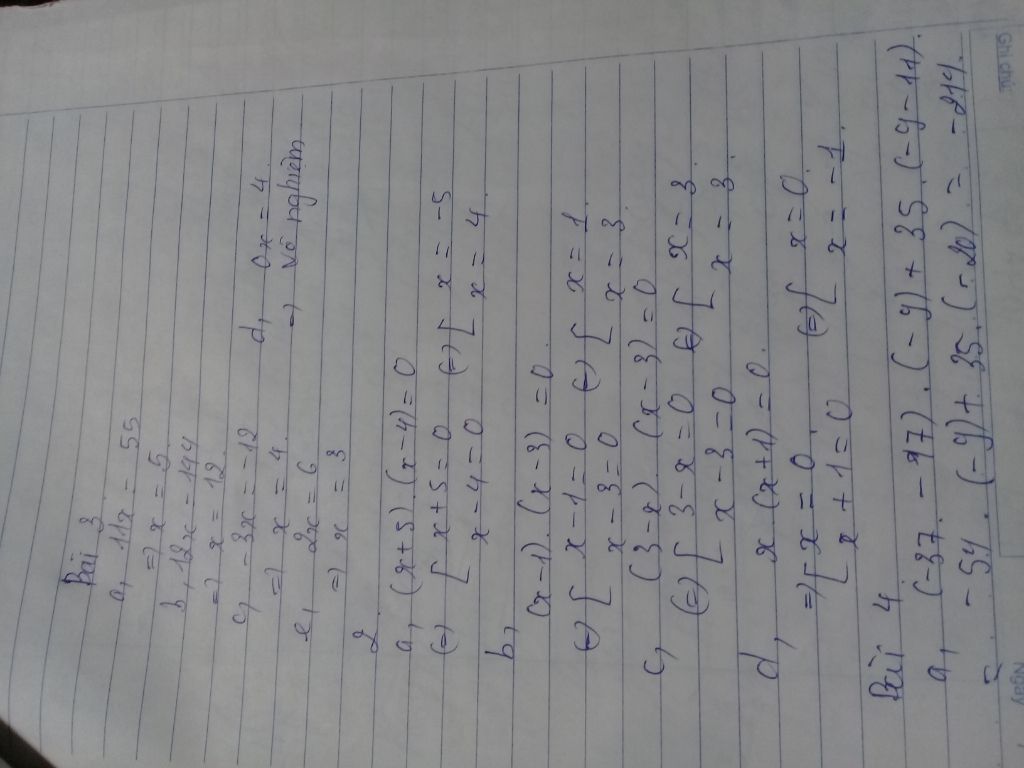 Bài 3
a, 11x = 55
=) x = 5
b, 12x = 144
=) x = 12
c, -3x = -12
=) x = 4
d, 0x = 4
=) Vô nghiệm
e, 2x = 6
=) x = 3
2
a, (x+5).(x-4)=0
(=) [ x+5=0 (=) [ x = -5
x-4=0 x = 4.
b,
(x-1).(x-3)=0
(=) [ x-1=0 (=) [ x=1
x-3=0 x=3
c, (3-x).(x-3)=0
(=) [ 3-x=0 (=) [ x=3
x-3=0 x=3
d, x.(x+1)=0.
=) [ x=0 (=) [ x=0
x+1=0 x=-1
Bài 4
a, (-37. -97).(-9)+35.(-9-11).
= -54.(-9)+35.(-20) = -214.